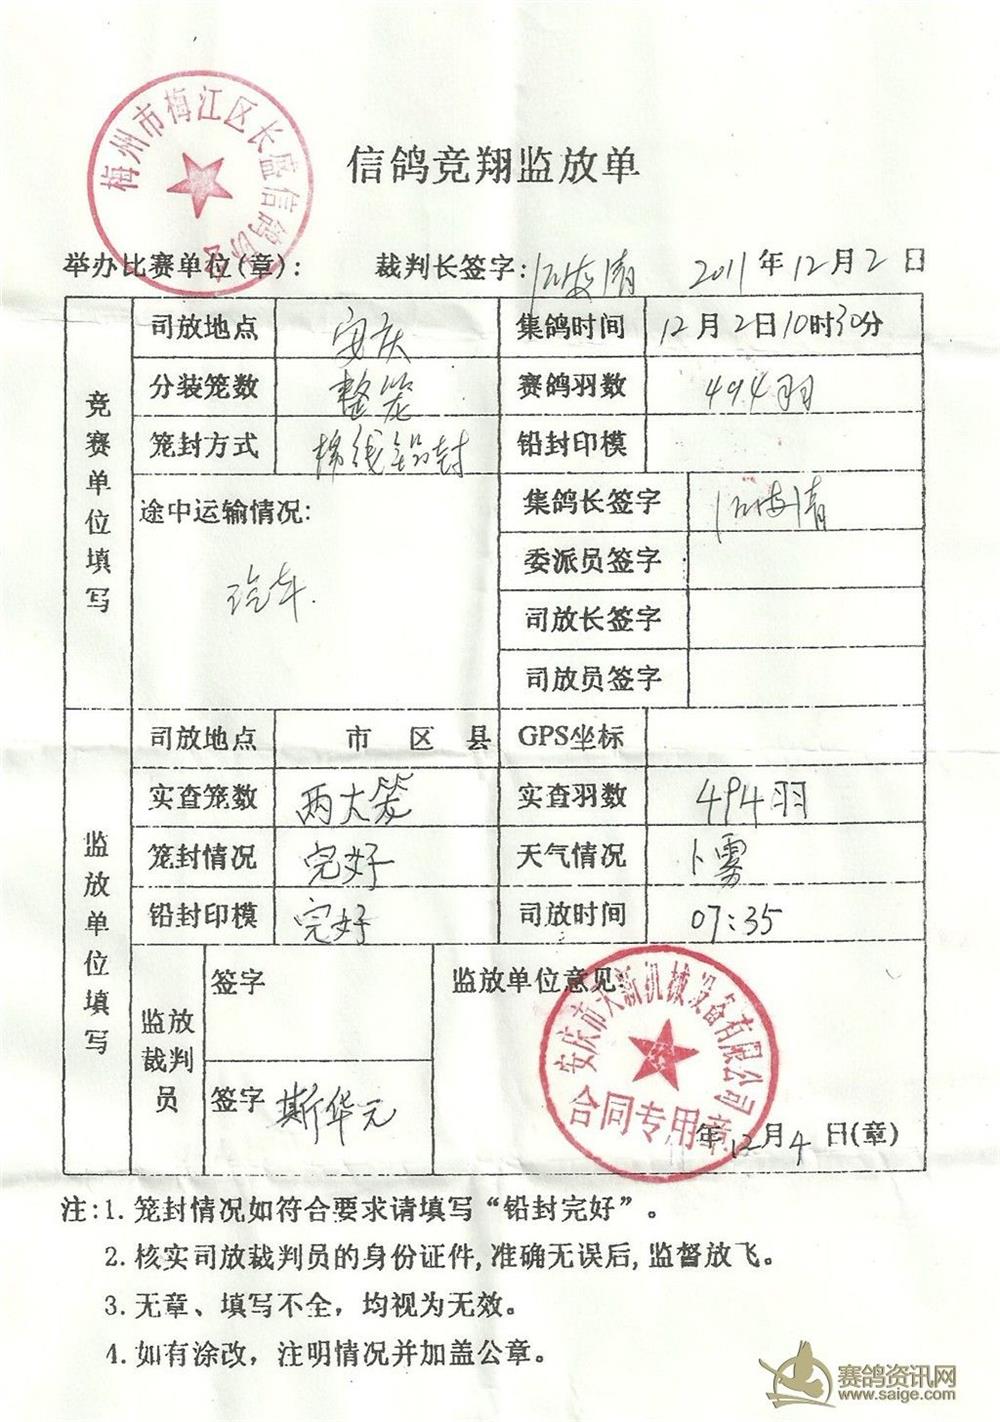 梅州市梅江区长盛信鸽协会
信鸽竞翔监放单
举办比赛单位(章): 裁判长签字: 2011年12月2日
竞赛单位填写
司放地点 安庆 集鸽时间 12月2日10时30分
分装笼数 整笼 赛鸽羽数 494羽
笼封方式 棉线铅封 铅封印模
途中运输情况: 集鸽长签字
汽车. 委派员签字
司放长签字
司放员签字
监放单位填写
司放地点 市 区 县 GPS坐标
实查笼数 两大笼 实查羽数 494羽
笼封情况 完好 天气情况 卜雾
铅封印模 完好 司放时间 07:35
监放裁判员 签字 监放单位意见:
签字 斯华元
安庆市大新机械设备有限公司
合同专用章
年12月4日(章)
注:1. 笼封情况如符合要求请填写“铅封完好”。
2. 核实司放裁判员的身份证件,准确无误后,监督放飞。
3. 无章、填写不全，均视为无效。
4. 如有涂改，注明情况并加盖公章。
赛鸽资讯网
www.saige.com